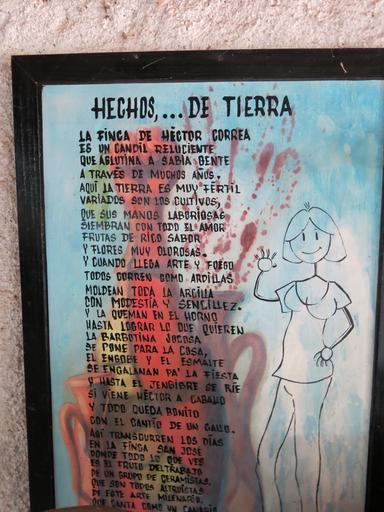 HECHOS,... DE TIERRA
LA FINCA DE HÉCTOR CORREA
ES UN CANDIL RELUCIENTE
QUE AGLUTINA A SABIA GENTE
A TRAVÉS DE MUCHOS AÑOS.
AQUÍ LA TIERRA ES MUY FÉRTIL
VARIADOS SON LOS CULTIVOS,
QUE SUS MANOS LABORIOSAS
SIEMBRAN CON TODO EL AMOR
FRUTAS DE RICO SABOR
Y FLORES MUY OLOROSAS.
Y CUANDO LLEGA ARTE Y FUEGO
TODOS CORREN COMO ARDILLAS
MOLDEAN TODA LA ARCILLA
CON MODESTIA Y SENCILLEZ.
Y LA QUEMAN EN EL HORNO
HASTA LOGRAR LO QUE QUIEREN
LA BARBOTINA JOCOSA
SE PONE PARA LA COSA,
EL ENGOBE Y EL ESMALTE
SE ENGALANAN PA' LA FIESTA
Y HASTA EL JENGIBRE SE RÍE
SI VIENE HÉCTOR A CABALLO
Y TODO QUEDA BONITO
CON EL CANTÍO DE UN GALLO.
ASÍ TRANSCURREN LOS DÍAS
EN LA FINCA SAN JOSÉ
DONDE TODO LO QUE VES
ES EL FRUTO DEL TRABAJO
DE UN GRUPO DE CERAMISTAS,
QUE SON TODOS ALTRUISTAS
DE ESTE ARTE MILENARIO,
QUE CANTA COMO UN CANARIO